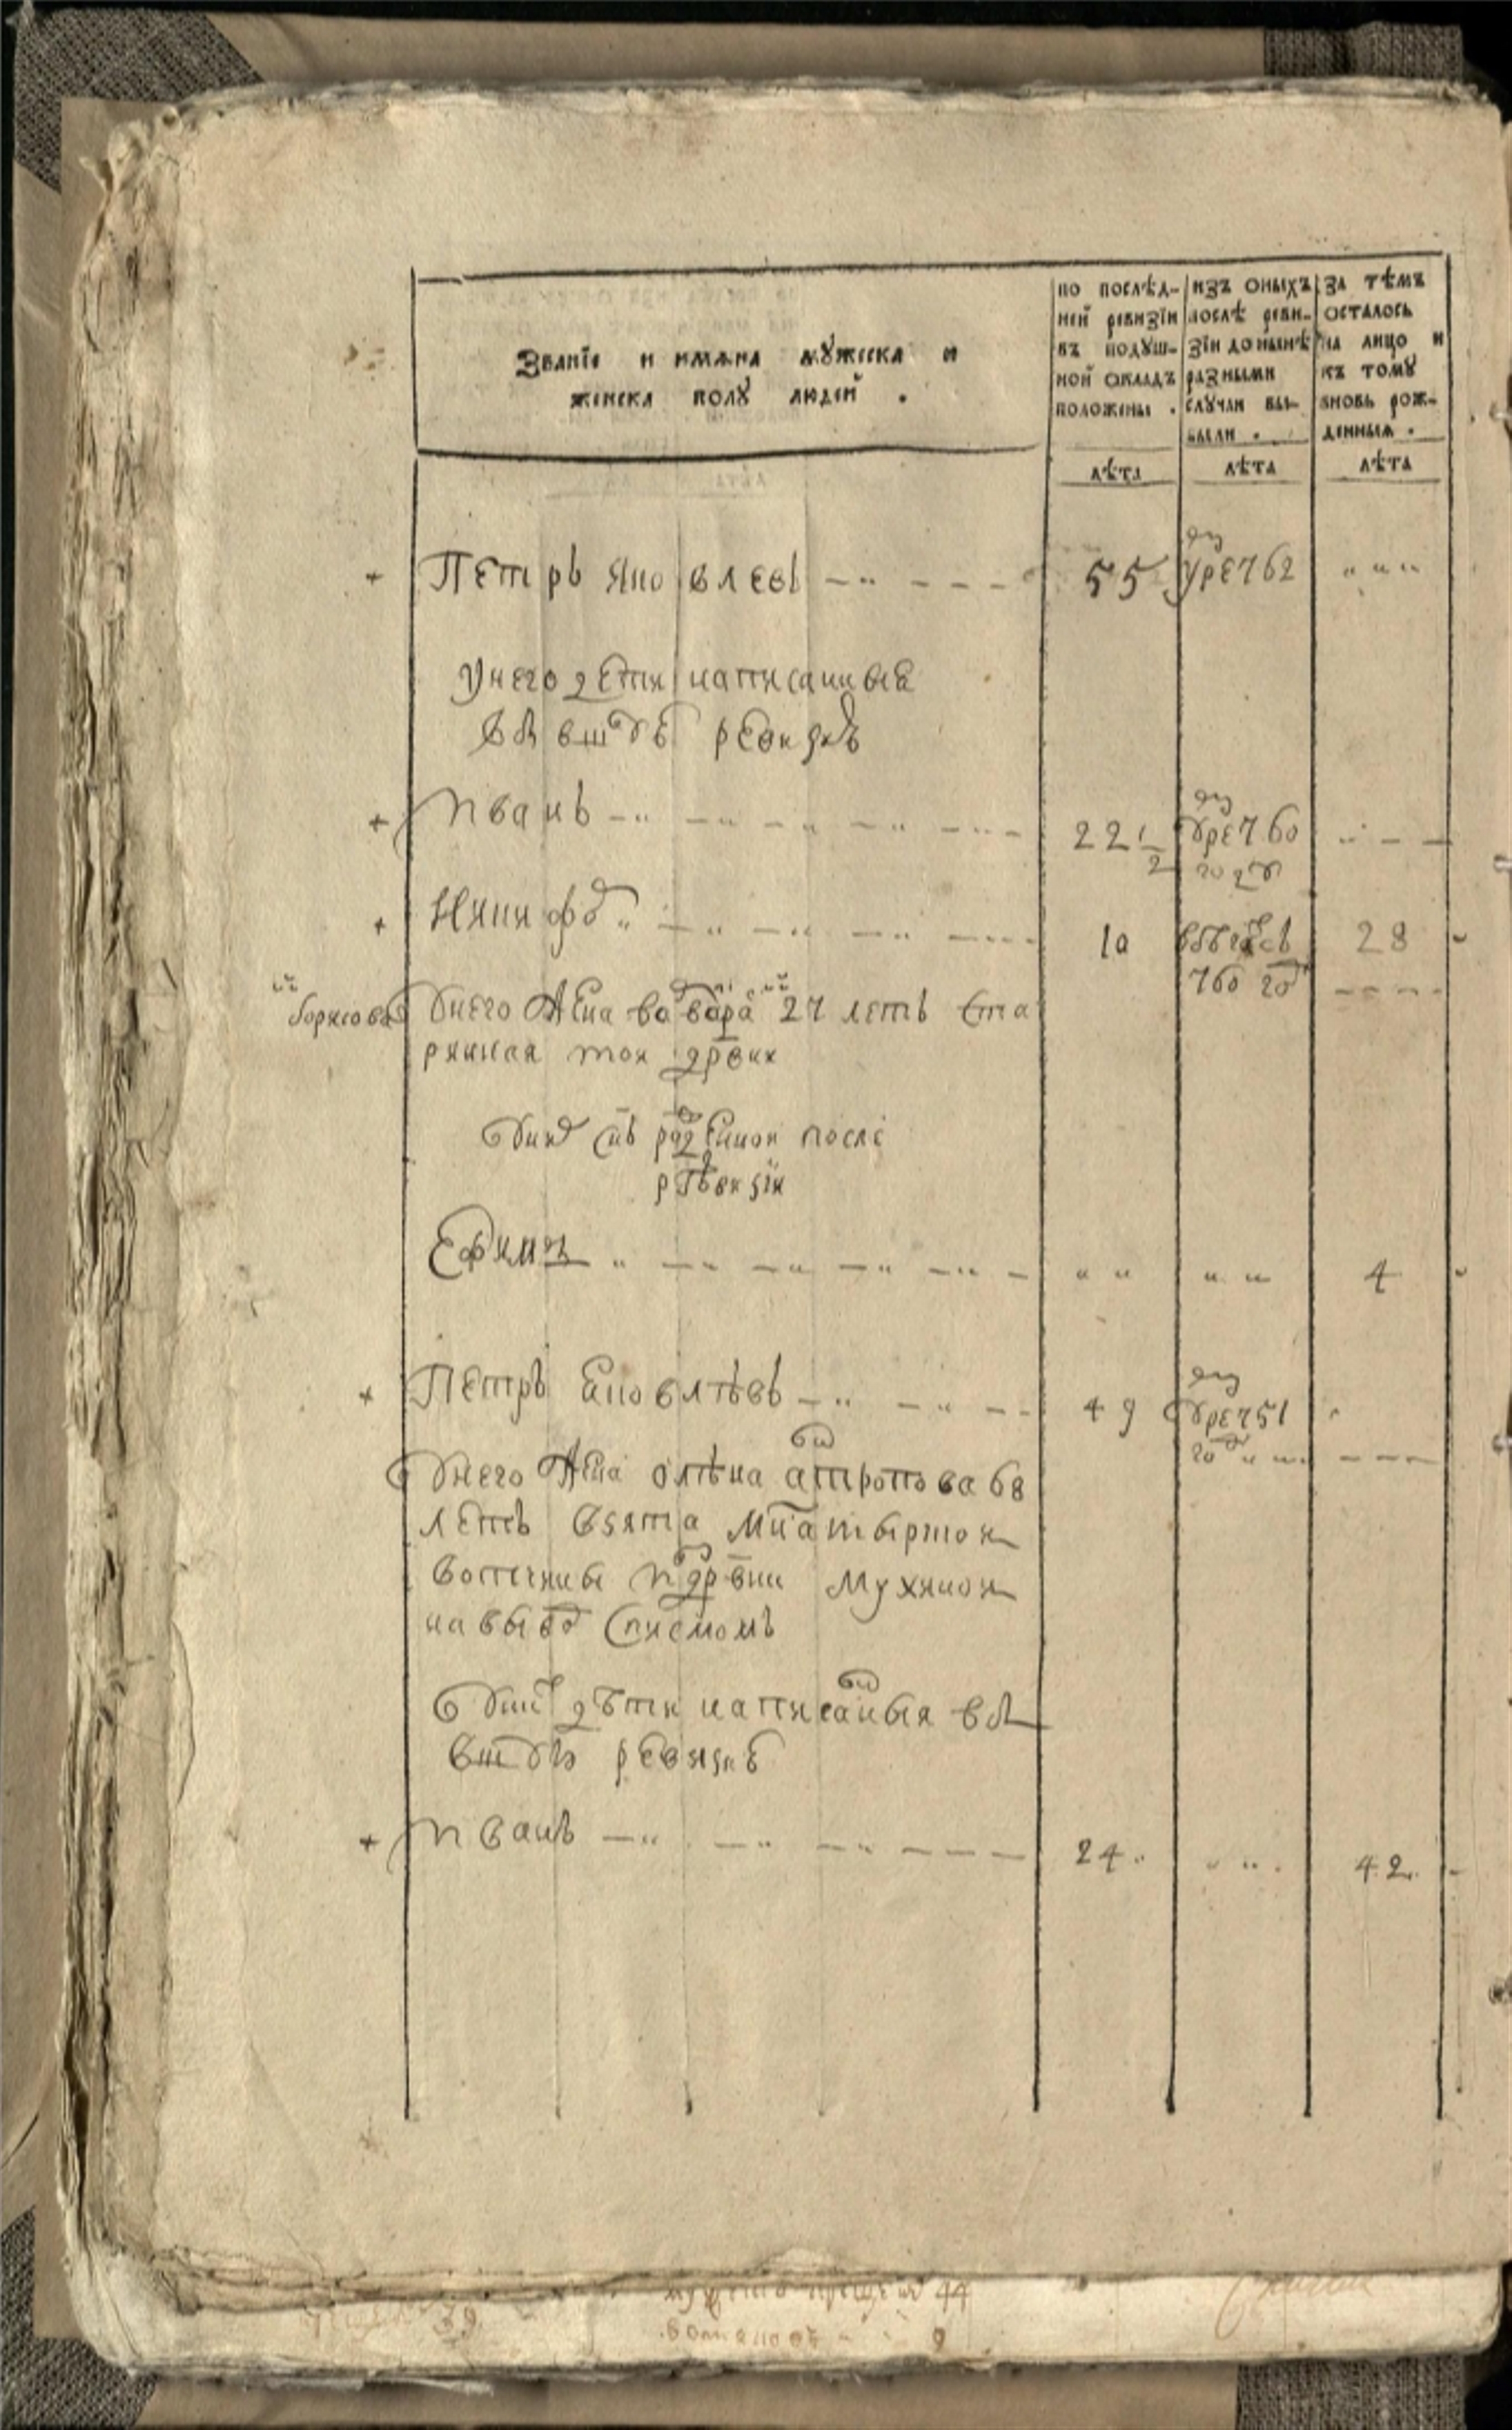 Званїе и имѧна мꙋжеска и
женска полꙋ людей .
по послѣд-
ней ревизїи
въ подꙋш-
ной окладъ
положены .
изъ оныхъ
послѣ реви-
зїи до нынѣ
разными
слꙋчаи вы-
были .
за тѣмъ
осталось
на лицо и
къ томꙋ
вновь рож-
денныѧ .
лѣта
лѣта
лѣта
Петръ Яковлевъ 55 умре 762
У него дети написанные
въ ревизкѣ
Иванъ 22 1/2 умре 760
году
Никифоръ 10 28
760 году
Борисова у него жена варвара 27 летъ ста
ринная тои дрвни
у них снъ рожденнои после
ревизїи
Ефимъ 4
Петръ Яковлѣвъ 49 умре 751
году
У него жена олѣна антропова 68
летъ взята
вотчины из дрвни Мухинои
на вывод списмомъ
у них дѣти написанныя в
ревизкѣ
Иванъ 24 42